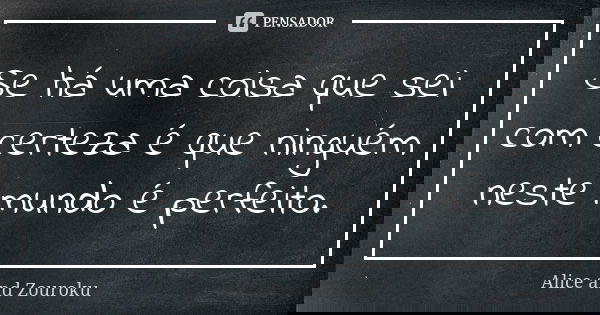 PENSADOR
Se há uma coisa que sei
com certeza é que ninguém
neste mundo é perfeito.
Alice and Zouroku